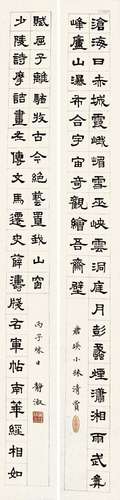 滄海日赤城霞峨嵋雪巫峽雲洞庭月彭蠡煙瀟湘雨武夷
峰廬山瀑布合宇宙奇觀繪吾齋壁
君瑛小妹清賞
少陵詩摩詰畫左傳文馬遷史薛濤牋右軍帖南華經相如
賦屈子離騷收古今絕藝置我山窗
丙子秋日 靜淑